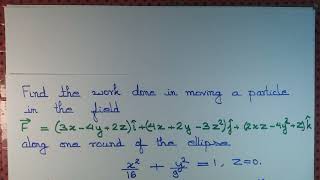 Find the work done in moving a particle
in the field
F⃗ = (3x-4y+2z)î+(4x+2y-3z²)ĵ+(2xz-4y²+z³)k̂
along one round of the ellipse
x²/16 + y²/9 = 1, z=0.